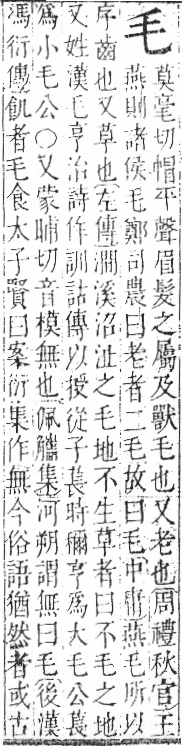 毛 莫毫切帽平聲眉髮之屬及獸毛也又老也周禮秋官王
燕則諸侯毛鄭司農曰老者二毛故曰毛中庸燕毛所以
序齒也又草也左傳澗溪沼沚之毛地不生草者曰不毛之地
又姓漢毛亨治詩作訓詁傳以授從子萇時稱亨爲大毛公萇
爲小毛公○又蒙晡切音模無也佩觿集河朔謂無曰毛後漢
馮衍傳飢者毛食太子賢曰案衍集作無今俗語猶然者或古